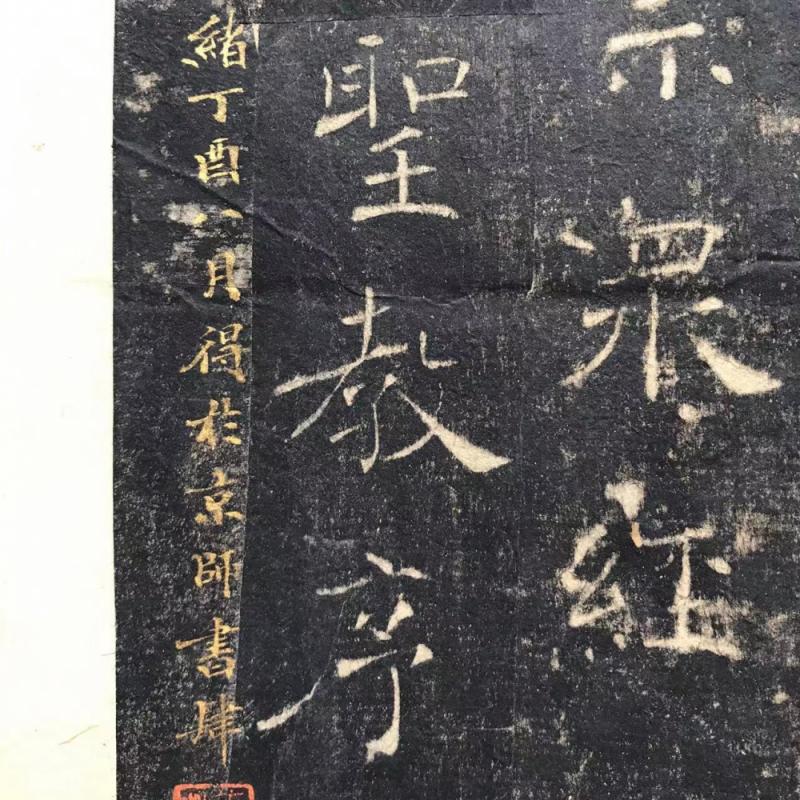 宗眾經
聖教序
緒丁酉八月得於京師書肆